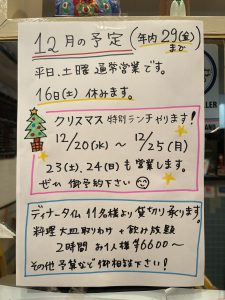 12月の予定（年内29(金)まで）
平日、土曜 通常営業です。
16日(土) 休みます。
クリスマス特別ランチやります!
12/20(水) 〜 12/25(月)
23(土)、24(日)も営業します。
ぜひ御予約下さい
ディナータイム 11名様より貸切り承ります。
料理 大皿取りわけ + 飲み放題
2時間 お1人様 ¥6600〜
その他 予算など御相談下さい!